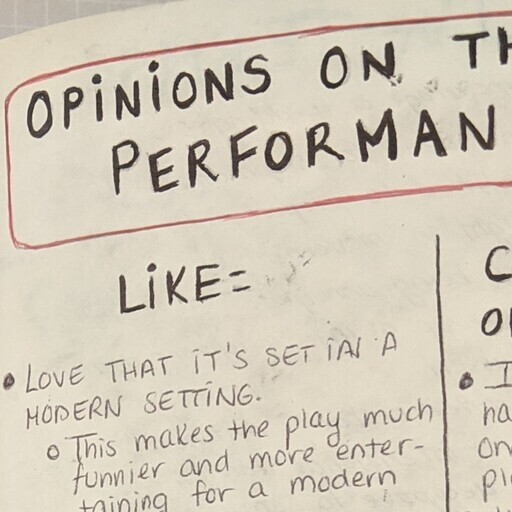 OPINIONS ON TH
PERFORMAN
LIKE=
• LOVE THAT IT'S SET IN A
MODERN SETTING.
○ This makes the play much
funnier and more enter-
taining for a modern
C
O
• I
ha
on
pl